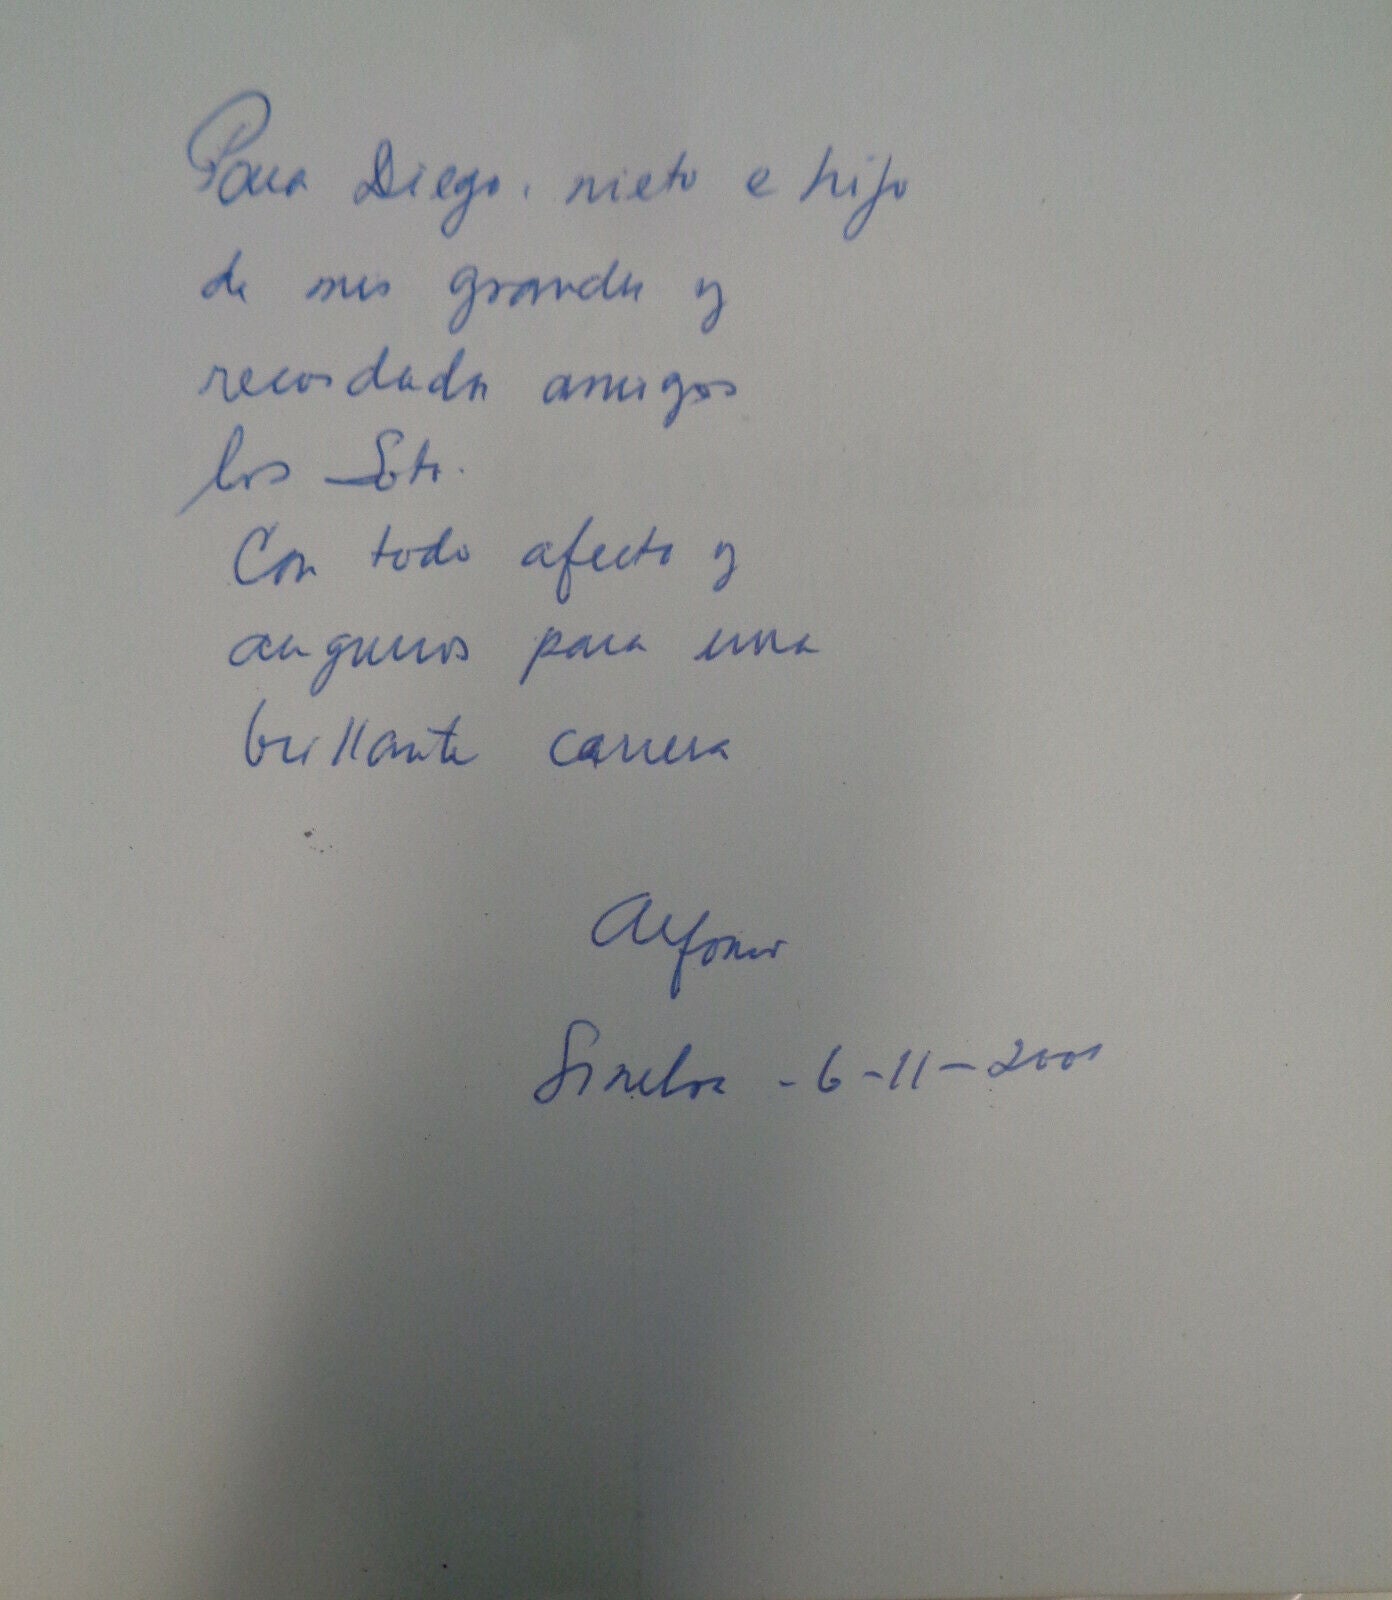 Para Diego, nieto e hijo
de mis grandes y
recordados amigos
los Soto.
Con todo afecto y
augurios para una
brillante carrera
Alfonso
Sinelva - 6-11-2001